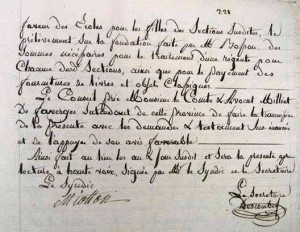 228
faveur des Ecoles pour les filles des Sections Susdites, le
prélèvement sur la fondation faite par Mr
des
sommes nécessaires pour le traitement d'une régente pour
Chacune des Sections, ainsi que pour le payement des
fournitures de livres et objets Classiques
Le Conseil prie Monsieur le Comte & Avocat Milliet
de faverges Intendant de cette province de faire la transmission
de la présente avec les demandes &
et de l'appuyer de son avis favorable
Ainsi fait au lieu les an & Jour Susdit et Sera la présente après
lecture, à haute voix, Signée par Mr le Syndic et le Secretaire
Le Syndic
Le Secretaire